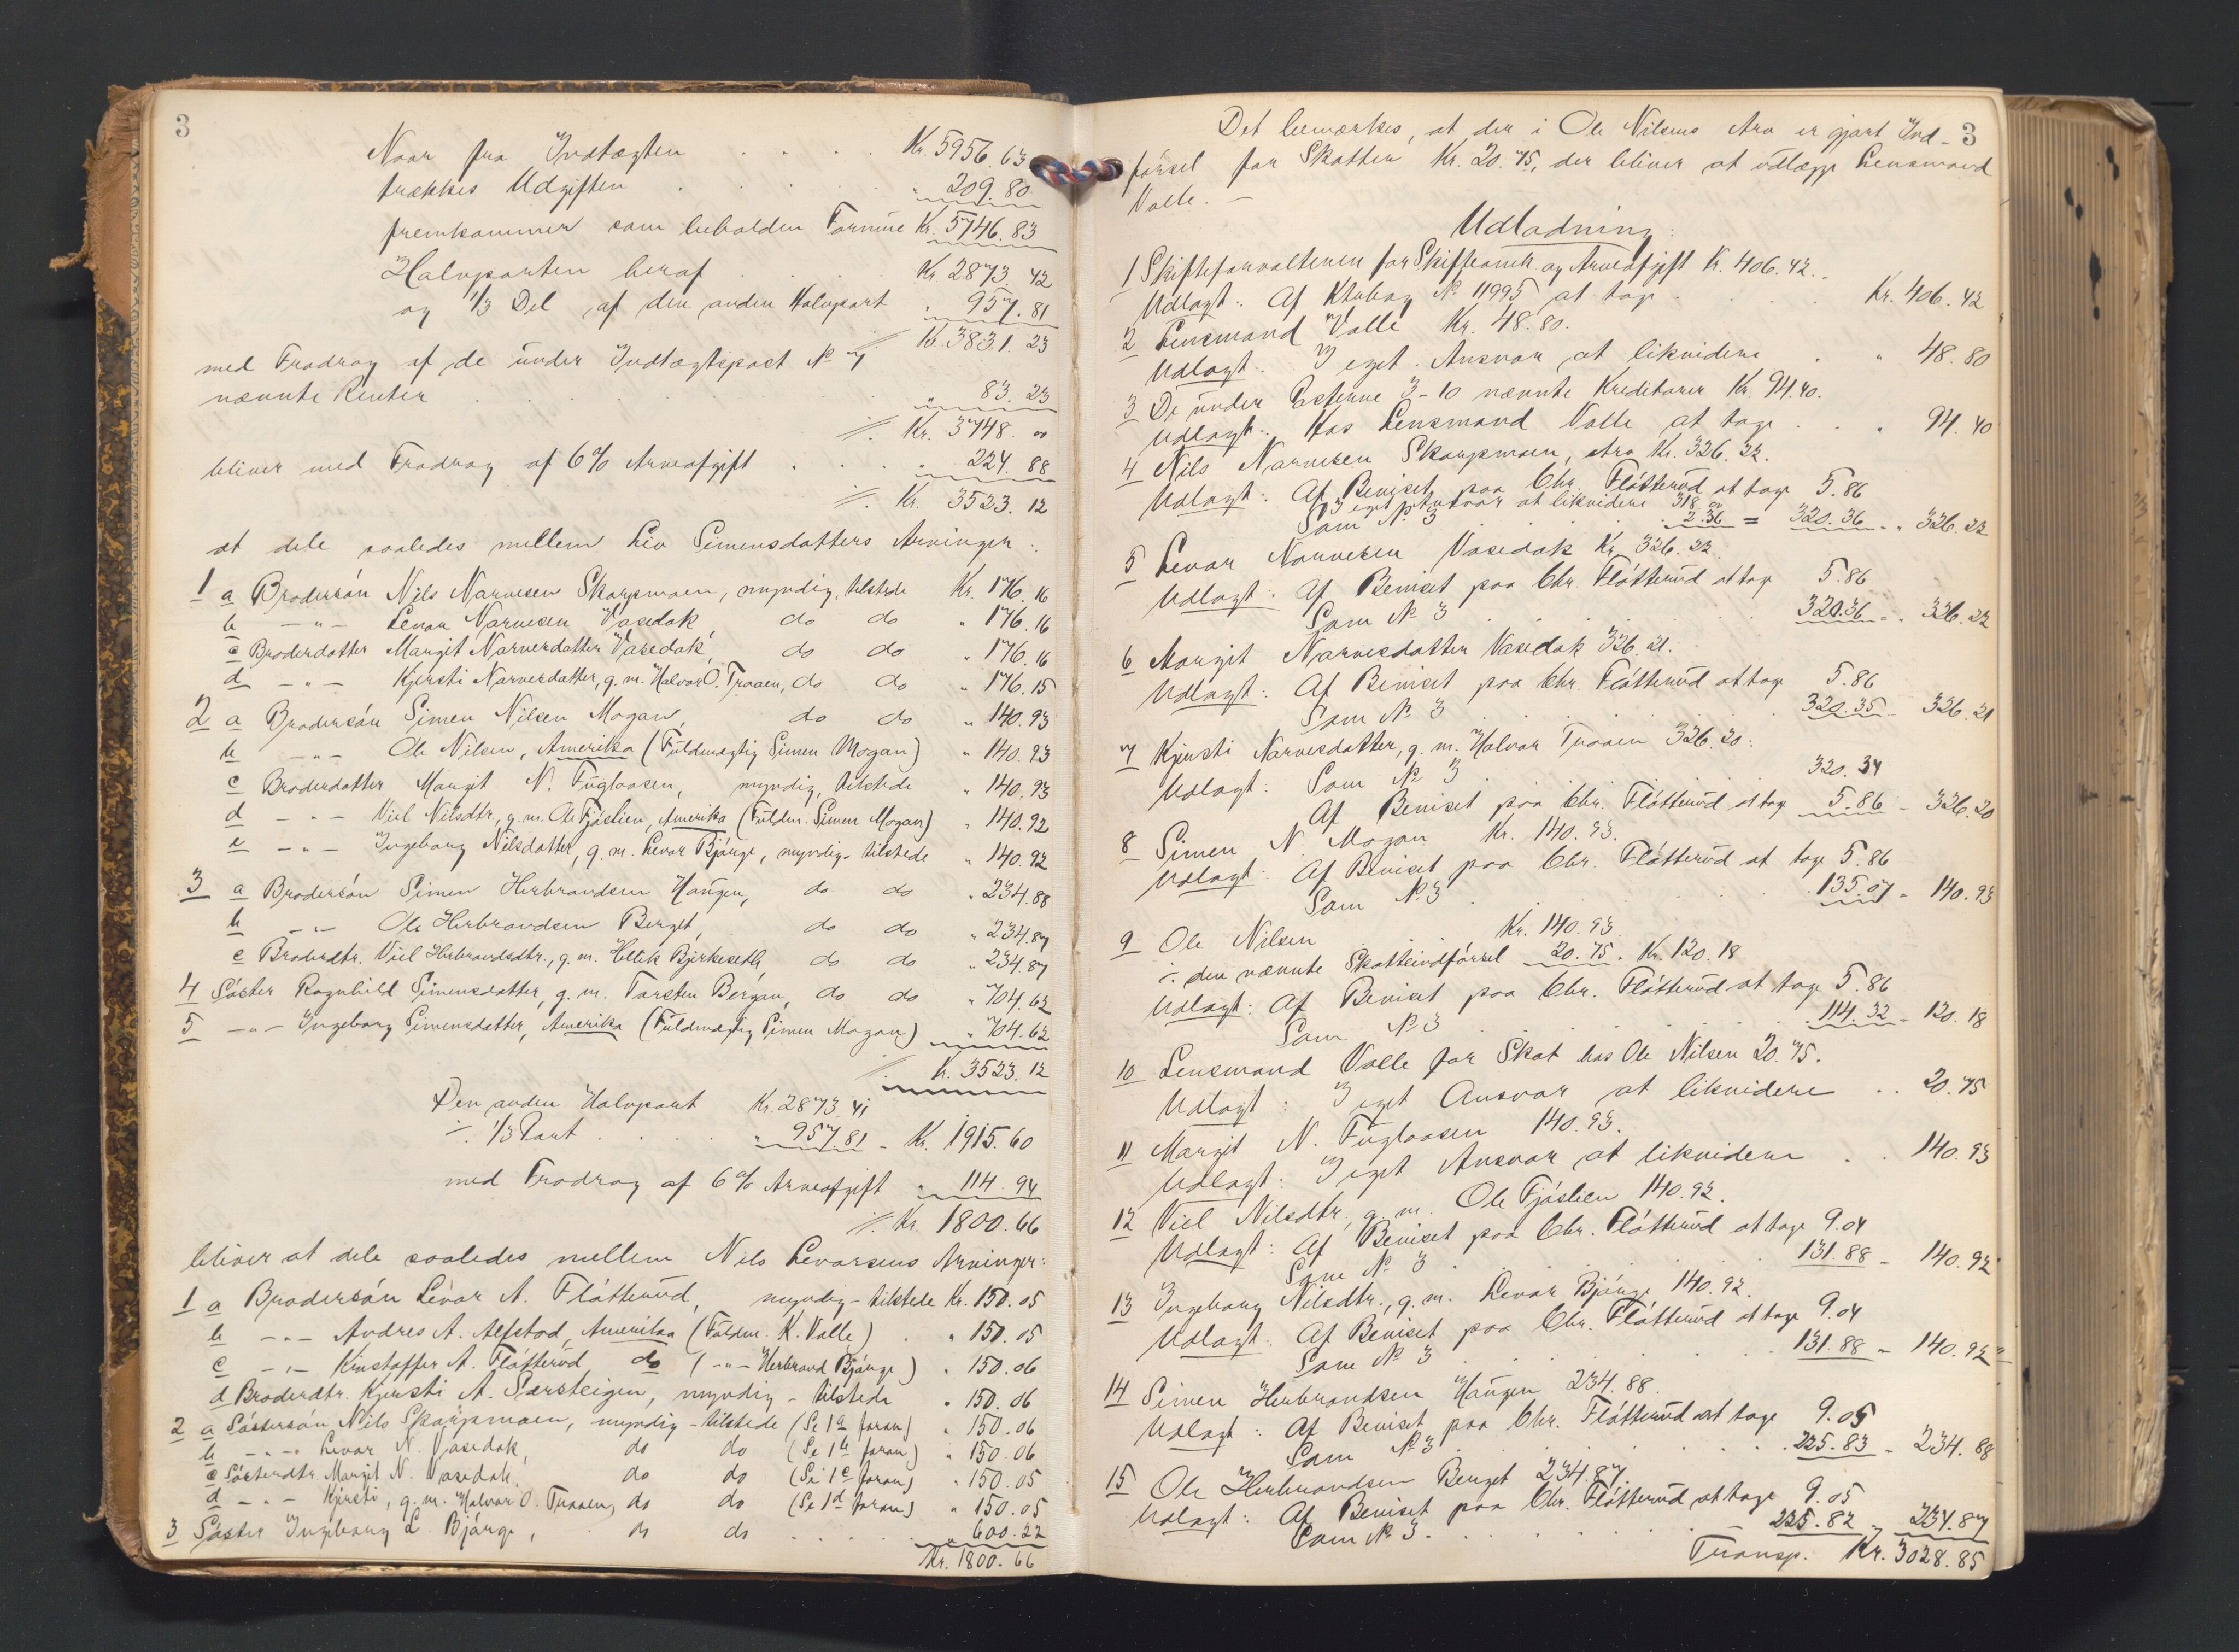 3
Naar fra Indtægten . . . . Kr. 5956.63
trækkes Udgiften . . . . . " 209.80
fremkommer som beholden Formue Kr. 5746.83
Halvparten heraf . . . . Kr. 2873.42
og 1/3 Del af den anden Halvpart " 957.81
Kr. 3831.23
med Fradrag af de under Indtægtspost No 7
nævnte Renter . . . . . . . " 83.23
Kr. 3748. "
bliver med Fradrag af 6% Arveafgift . . . " 224.88
Kr. 3523.12
at dele saaledes mellem Liv Simensdatters Arvinger:
1 a Brodersön Nils Narvesen Skarpmoen, myndig, tilstede Kr. 176.16
b - " - Levor Narvesen Vasedok, do do " 176.16
c Broderdatter Margit Narvesdatter Vasedok, do do " 176.16
d - " - Kjersti Narvesdatter, g. m. Halvor O. Traaen, do do " 176.15
2 a Brodersön Simen Nilsen Mogan, do do " 140.93
b - " - Ole Nilsen, Amerika (Fuldmægtig Simen Mogan) " 140.93
c Broderdatter Margit N. Fuglaasen, myndig, tilstede " 140.93
d - " - Viel Nilsdtr., g. m. Ole Fjöslien, Amerika (Fuldm. Simen Mogan) " 140.92
e - " - Ingeborg Nilsdatter, g. m. Levor Bjönge, myndig - tilstede " 140.92
3 a Brodersön Simen Herbrandsen Haugen, do do " 234.88
b - " - Ole Herbrandsen Berget, do do " 234.87
c Broderdtr. Viel Herbrandsdtr., g. m. Hellik Bjerkeseth, do do " 234.87
4 Söster Ragnhild Simensdatter, g. m. Torsten Bergan, do do " 704.62
5 - " - Ingeborg Simensdatter, Amerika (Fuldmægtig Simen Mogan) " 704.62
Kr. 3523.12
Den anden Halvpart Kr. 2873.41
÷ 1/3 Part . . . . " 957.81 - Kr. 1915.60
med Fradrag af 6% Arveafgift " 114.94
Kr. 1800.66
bliver at dele saaledes mellem Nils Levorsens Arvinger:
1 a Brodersön Levor A. Flötterud, myndig - tilstede Kr. 150.05
b - " - Andres A. Alfstad, Amerika (Fuldm. K. Valle) . " 150.05
c - " - Kristoffer A. Flötterud do ( - " - Herbrand Bjönge) " 150.06
d Broderdtr. Kjersti A. Særsteigen, myndig - tilstede " 150.06
2 a Söstersön Nils Skarpmoen, myndig - tilstede (Se 1 a foran) " 150.06
b - " - Levor N. Vasedok, do do (Se 1 b foran) " 150.06
c Sösterdtr. Margit N. Vasedok, do do (Se 1 c foran) " 150.05
d - " - Kjersti, g. m. Halvor O. Traaen, do do (Se 1 d foran) " 150.05
3 Söster Ingeborg L. Bjönge, do do . . . . " 600.22
Kr. 1800.66
3
Det bemærkes, at der i Ole Nilsens Arv er gjort Ind-
försel for Skatten Kr. 20.75, der bliver at udlægge Lensmand
Valle. -
Udlodning:
1 Skifteforvalteren for Skifteomk. og Arveafgift Kr. 406.42.
Udlagt: Af Ktobog No 11995 at tage . . . Kr. 406.42
2 Lensmand Valle Kr. 48.80.
Udlagt: I eget Ansvar at likvidere . . " 48.80
3 De under Posterne 3-10 nævnte Kreditorer Kr. 94.40.
Udlagt: Hos Lensmand Valle at tage . . " 94.40
4 Nils Narvesen Skarpmoen, Arv Kr. 326.22.
Udlagt: Af Beviset paa Chr. Flötterud at tage 5.86
I eget Ansvar at likvidere 318. "
Som No 3 . . . 2.36 = 320.36 - " 326.22
5 Levor Narvesen Vasedok Kr. 326.22.
Udlagt: Af Beviset paa Chr. Flötterud at tage 5.86
Som No 3 . . . 320.36 - " 326.22
6 Margit Narvesdatter Vasedok 326.21.
Udlagt: Af Beviset paa Chr. Flötterud at tage 5.86
Som No 3 . . . 320.35 - 326.21
7 Kjersti Narvesdatter, g. m. Halvor Traaen 326.20.
Udlagt: Som No 3 320.34
Af Beviset paa Chr. Flötterud at tage 5.86 - 326.20
8 Simen N. Mogan Kr. 140.93.
Udlagt: Af Beviset paa Chr. Flötterud at tage 5.86
Som No 3 . . . 135.07 - 140.93
9 Ole Nilsen Kr. 140.93.
÷ den nævnte Skatteindförsel 20.75. Kr. 120.18
Udlagt: Af Beviset paa Chr. Flötterud at tage 5.86
Som No 3 114.32 - 120.18
10 Lensmand Valle for Skat hos Ole Nilsen 20.75.
Udlagt: I eget Ansvar at likvidere . . 20.75
11 Margit N. Fuglaasen 140.93.
Udlagt: I eget Ansvar at likvidere . . 140.93
12 Viel Nilsdtr., g. m. Ole Fjöslien 140.92.
Udlagt: Af Beviset paa Chr. Flötterud at tage 9.04
Som No 3 . . . 131.88 - 140.92
13 Ingeborg Nilsdtr., g. m. Levor Bjönge 140.92.
Udlagt: Af Beviset paa Chr. Flötterud at tage 9.04
Som No 3 . . . 131.88 - 140.92
14 Simen Herbrandsen Haugen 234.88.
Udlagt: Af Beviset paa Chr. Flötterud at tage 9.05
Som No 3 . . . 225.83 - 234.88
15 Ole Herbrandsen Berget 234.87.
Udlagt: Af Beviset paa Chr. Flötterud at tage 9.05
Som No 3 . . . 225.82 - 234.87
Transp. Kr. 3028.85